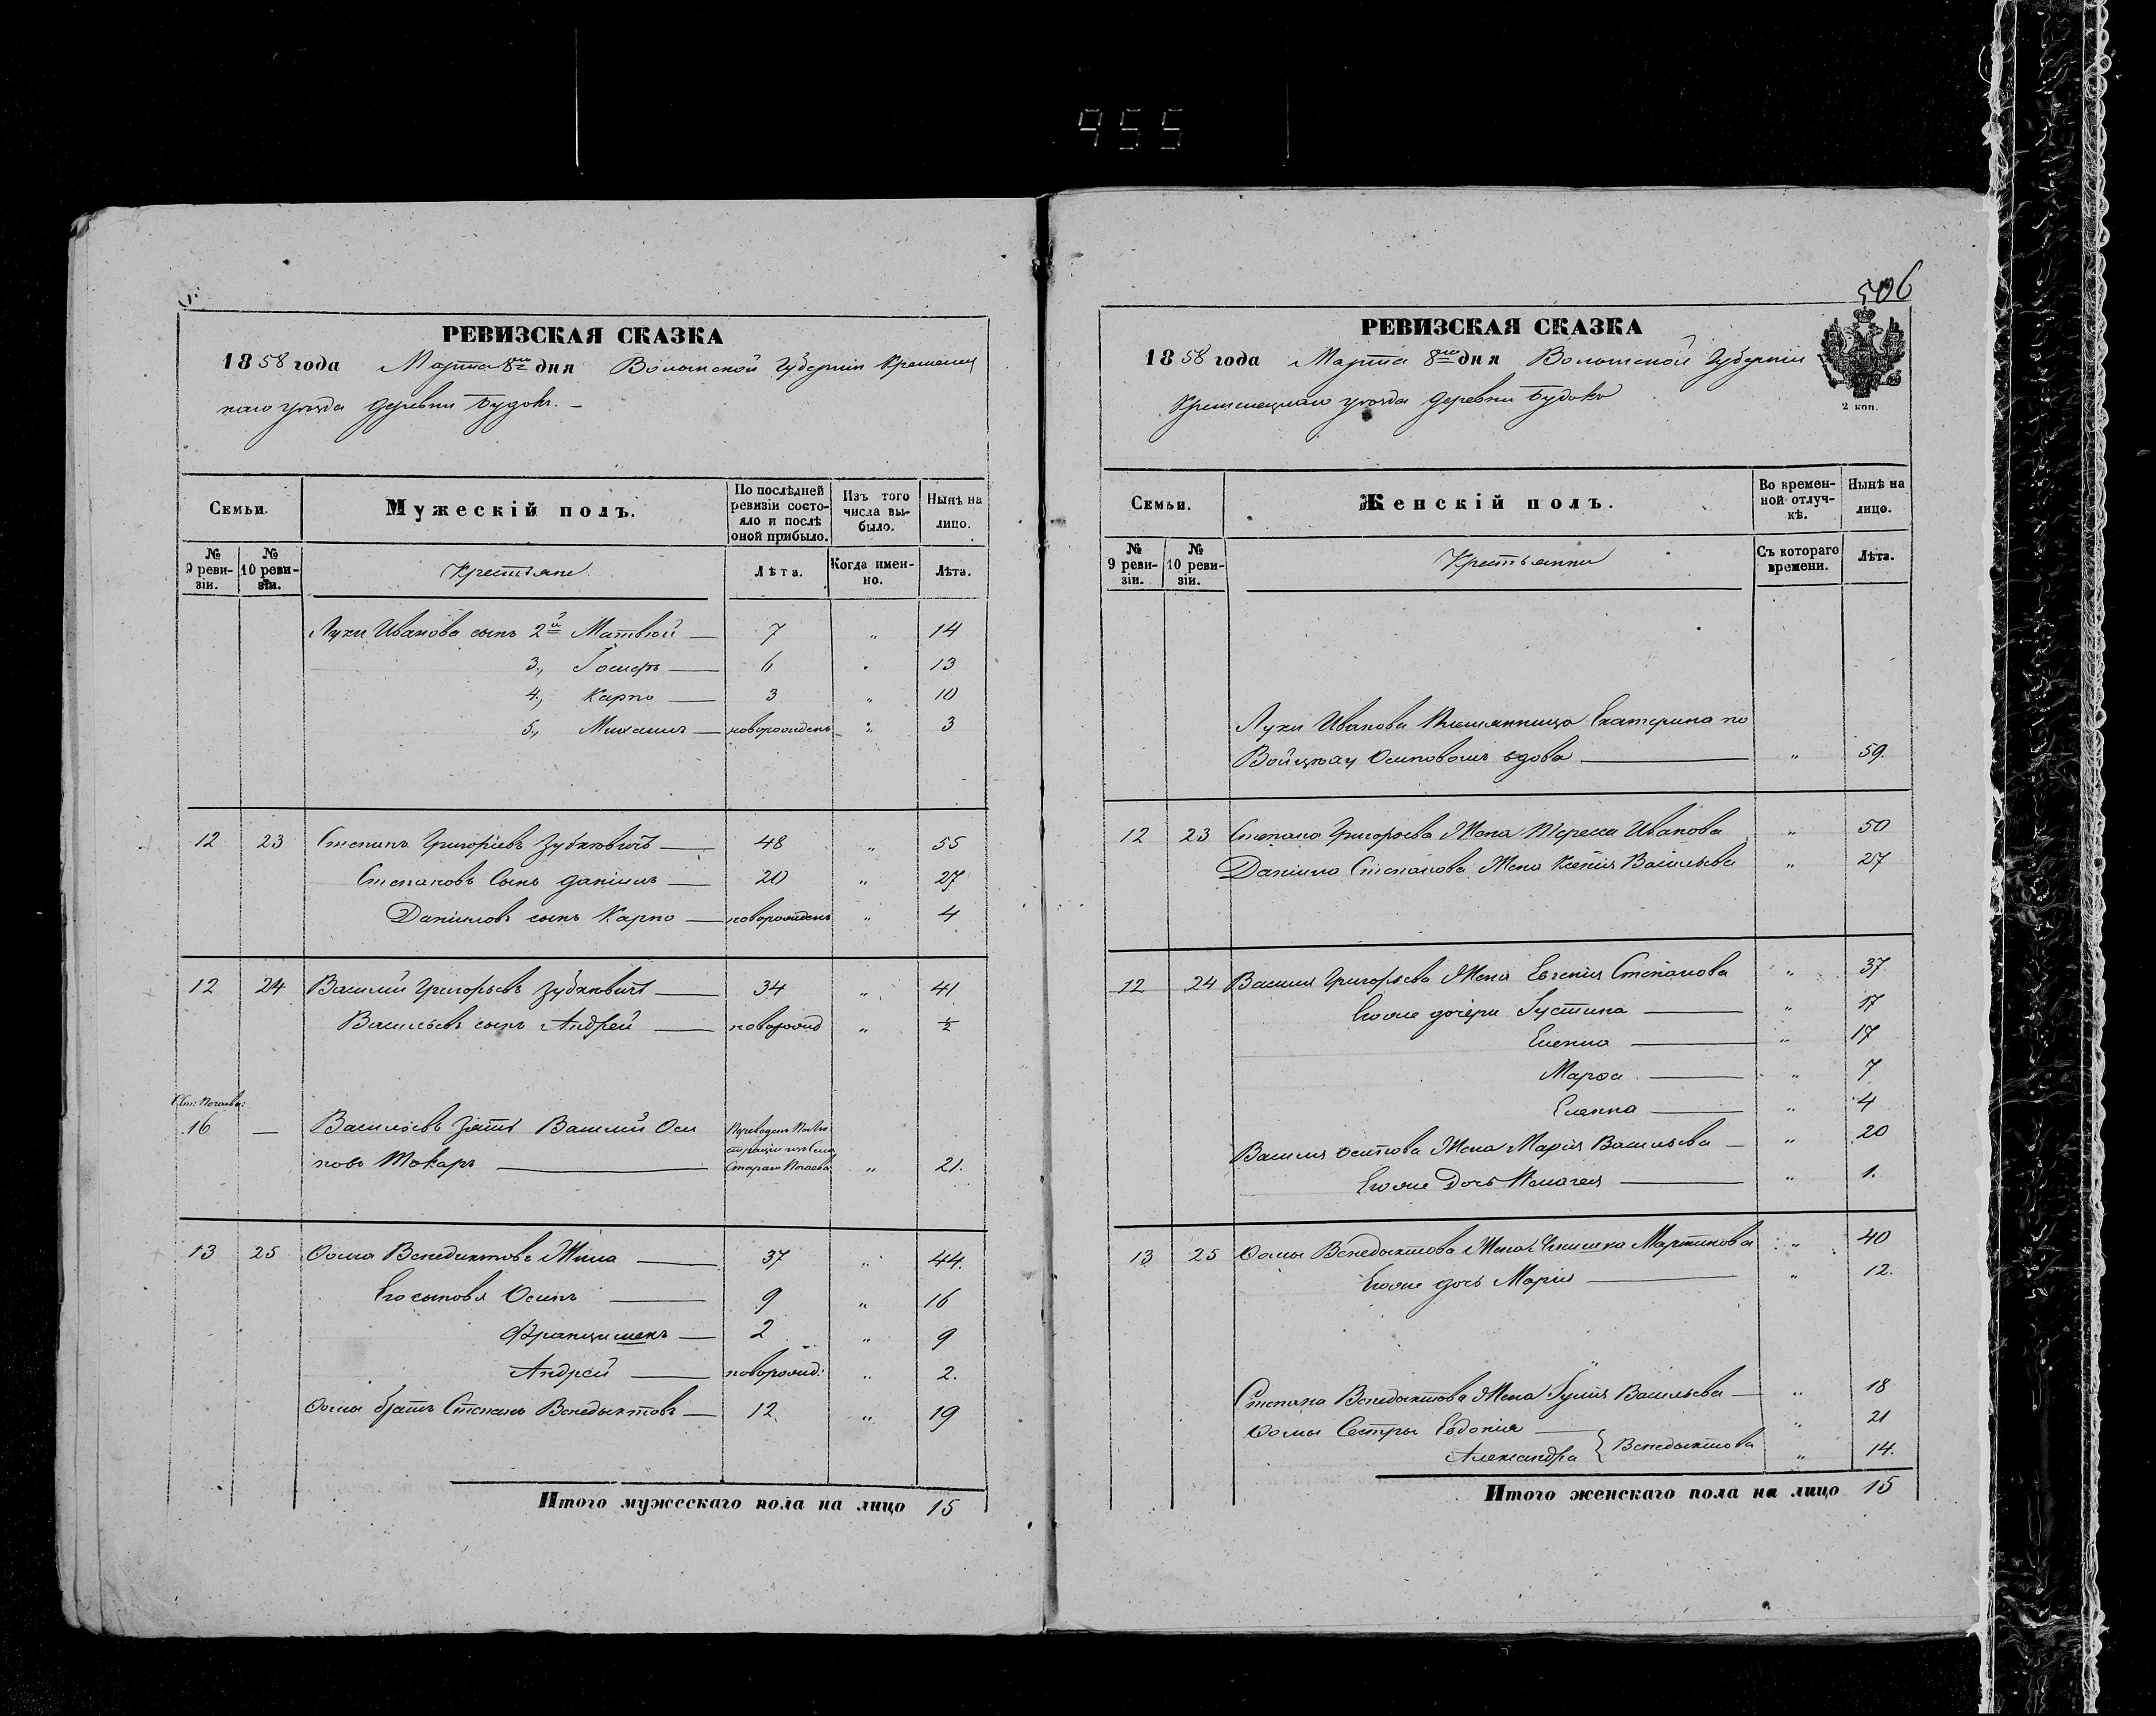 955
РЕВИЗСКАЯ СКАЗКА
1858 года Марта 8го дня Волынской Губерніи Кременец
каго уѣзда деревни Будокъ. –
Семьи.
Мужескій полъ.
По послѣдней ревизіи состояло и послѣ оной прибыло.
Изъ того числа выбыло.
Нынѣ на лицо.
№ 9 ревизіи.
№ 10 ревизіи.
Крестьяне
Лѣта.
Когда именно.
Лѣта.
Луки Иванова сынъ 2й Матвѣй — 7 „ 14
3., Іосифъ — 6 „ 13
4., Карпо — 3 „ 10
5., Михаилъ — новорожденъ „ 3
12 23 Степанъ Григоріевъ Зубкевичъ — 48 „ 55
Степановъ Сынъ Даніилъ — 20 „ 27
Даніиловъ сынъ Карпо — новорожденъ „ 4
12 24 Василий Григорьевъ Зубкевичъ — 34 „ 41
Васильевъ сынъ Андрей — новорожд „ ½
Ст: Почаева:
16 — Васильевъ зять Василий Оси
повъ Токаръ — Стараго Почаева „ 21.
13 25 Ѳома Венедиктовъ — 37 „ 44.
Его сыновья Осипъ — 9 „ 16
Францишекъ — 2 „ 9
Андрей — новорожд: „ 2.
Ѳомы братъ Степанъ Венедыктовъ — 12. „ 19
Итого мужескаго пола на лицо 15
506
РЕВИЗСКАЯ СКАЗКА
1858 года Марта 8го дня Волынской Губерніи
Кременецкаго уѣзда деревни Будокъ
2 коп.
Семьи.
Женскій полъ.
Во временной отлучкѣ.
Нынѣ на лицо.
№ 9 ревизіи.
№ 10 ревизіи.
Крестьянки
Съ котораго времени.
Лѣта.
Луки Иванова Племянница Екатерина по
Осиповомъ вдова — „ 59.
12 23 Степана Григорьева Жена Тереса Иванова „ 50
Даніила Степанова Жена Ксенія Васильева „ 27
12 24 Василия Григорьева Жена Евгенія Степанова „ 37
Егоже дочери Іустина — „ 17
Еленна — „ 17
Марѳа — „ 7
Еленна — „ 4
Василия Осипова Жена Марія Васильева — „ 20
Егоже Дочь Пелагея — „ 1.
13 25 Ѳомы Венедыктова Жена Мартинова „ 40
Егоже дочь Марія — „ 12.
Степана Венедыктова Жена Іулія Васильева — „ 18
Ѳомы Сестры Евдокія — „ 21
Александра } Венедыктова „ 14.
Итого женскаго пола на лицо 15